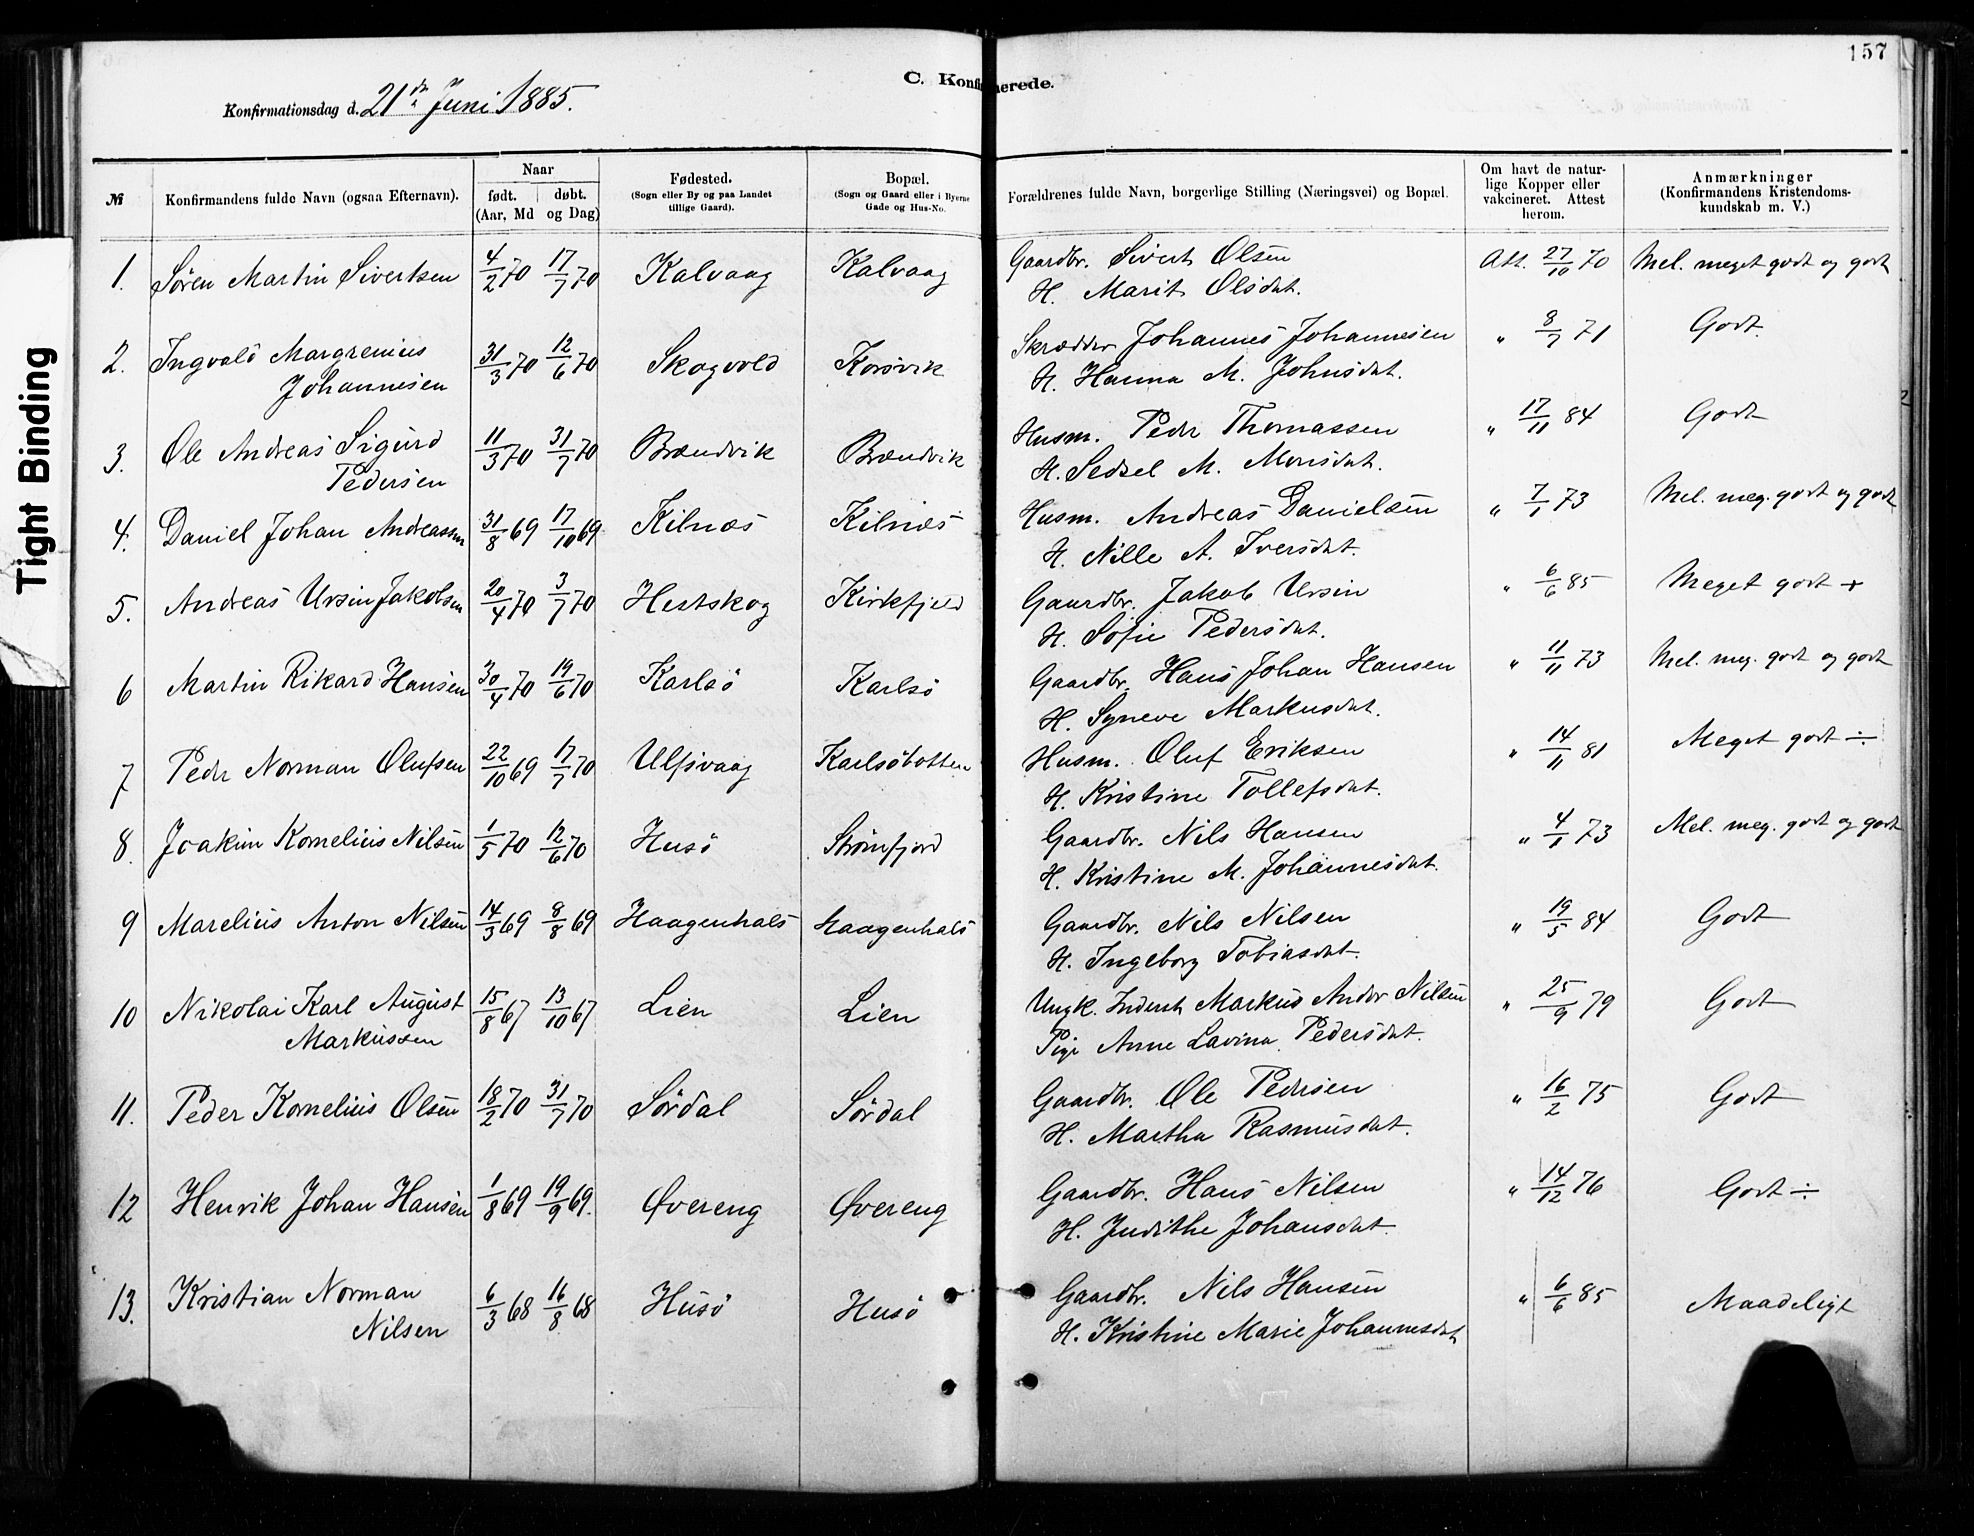 157
C. Konfirmerede.
Konfirmationsdag d. 21de Juni 1885.
Tight Binding
№ | Konfirmandens fulde Navn (ogsaa Efternavn). | Naar født. døbt. (Aar, Md og Dag) | Fødested. (Sogn eller By og paa Landet tillige Gaard). | Bopæl. (Sogn og Gaard eller i Byerne Gade og Hus-No. | Forældrenes fulde Navn, borgerlige Stilling (Næringsvei) og Bopæl. | Om havt de naturlige Kopper eller vakcineret. Attest herom. | Anmærkninger (Konfirmandens Kristendomskundskab m. V.)
1. Søren Martin Sivertsen 4/2 70 17/7 70 Kalvaag Kalvaag Gaardbr. Sivert Olsen Att. 27/10 70 Mel. meget godt og godt
H. Marit Olsdat.
2. Ingvald Margrenius 31/3 70 12/6 70 Skogvold Korsvik Skrædder Johannes Johannesen " 8/7 71 Godt.
Johannesen H. Hanna M. Johnsdat.
3. Ole Andreas Sigurd 11/3 70 31/7 70 Brændvik Brændvik Husm. Peder Thomassen " 17/11 84 Godt
Pedersen H. Sedsel M. Monsdat.
4. Daniel Johan Andreassen 31/8 69 17/10 69 Kilnæs Kilnæs Husm. Andreas Danielsen " 7/1 73 Mel. meg. godt og godt
H. Nille A. Iversdat.
5. Andreas Ursin Jakobsen 20/4 70 3/7 70 Hestskog Kirkfjeld Gaardbr. Jakob Ursin " 6/6 85 Meget godt +
H. Sofie Pedersdat.
6 Martin Rikard Hansen 30/4 70 19/6 70 Karlsö Karlsö Gaardbr. Hans Johan Hansen " 11/11 73 Mel. meg. godt og godt
H. Syneve Markusdat.
7 Peder Norman Olufsen 22/10 69 17/7 70 Ulfsvaag Karlsöbotten Husm. Oluf Eriksen " 14/11 81 Meget godt ÷
H. Kristine Tollefsdat.
8. Joakim Kornelius Nilsen 1/5 70 12/6 70 Husö Strömfjord Gaardbr. Nils Hansen " 4/1 73 Mel. meg. godt og godt
H. Kristine M. Johannesdat.
9 Marelius Anton Nilsen 14/3 69 8/8 69 Haagenhals Haagenhals Gaardbr. Nils Nilsen " 19/5 84 Godt
H. Ingeborg Tobiasdat.
10 Nikolai Karl August 15/8 67 13/10 67 Lien Lien Ungk. Inderst Markus Ander Nilsen " 25/9 79 Godt
Markussen Pige Anne Lavina Pedersdat.
11. Peder Kornelius Olsen 18/2 70 31/7 70 Sördal Sördal Gaardbr. Ole Pedersen " 16/2 75 Godt
H. Martha Rasmusdat.
12 Henrik Johan Hansen 1/8 69 19/9 69. Øvereng Øvereng Gaardbr. Hans Nilsen " 14/12 76 Godt ÷
H. Judithe Johansdat.
13. Kristian Norman 6/3 68 16/8 68 Husö Husö Gaardbr. Nils Hansen " 6/6 85 Maadeligt
Nilsen H. Kristine Marie Johannesdat